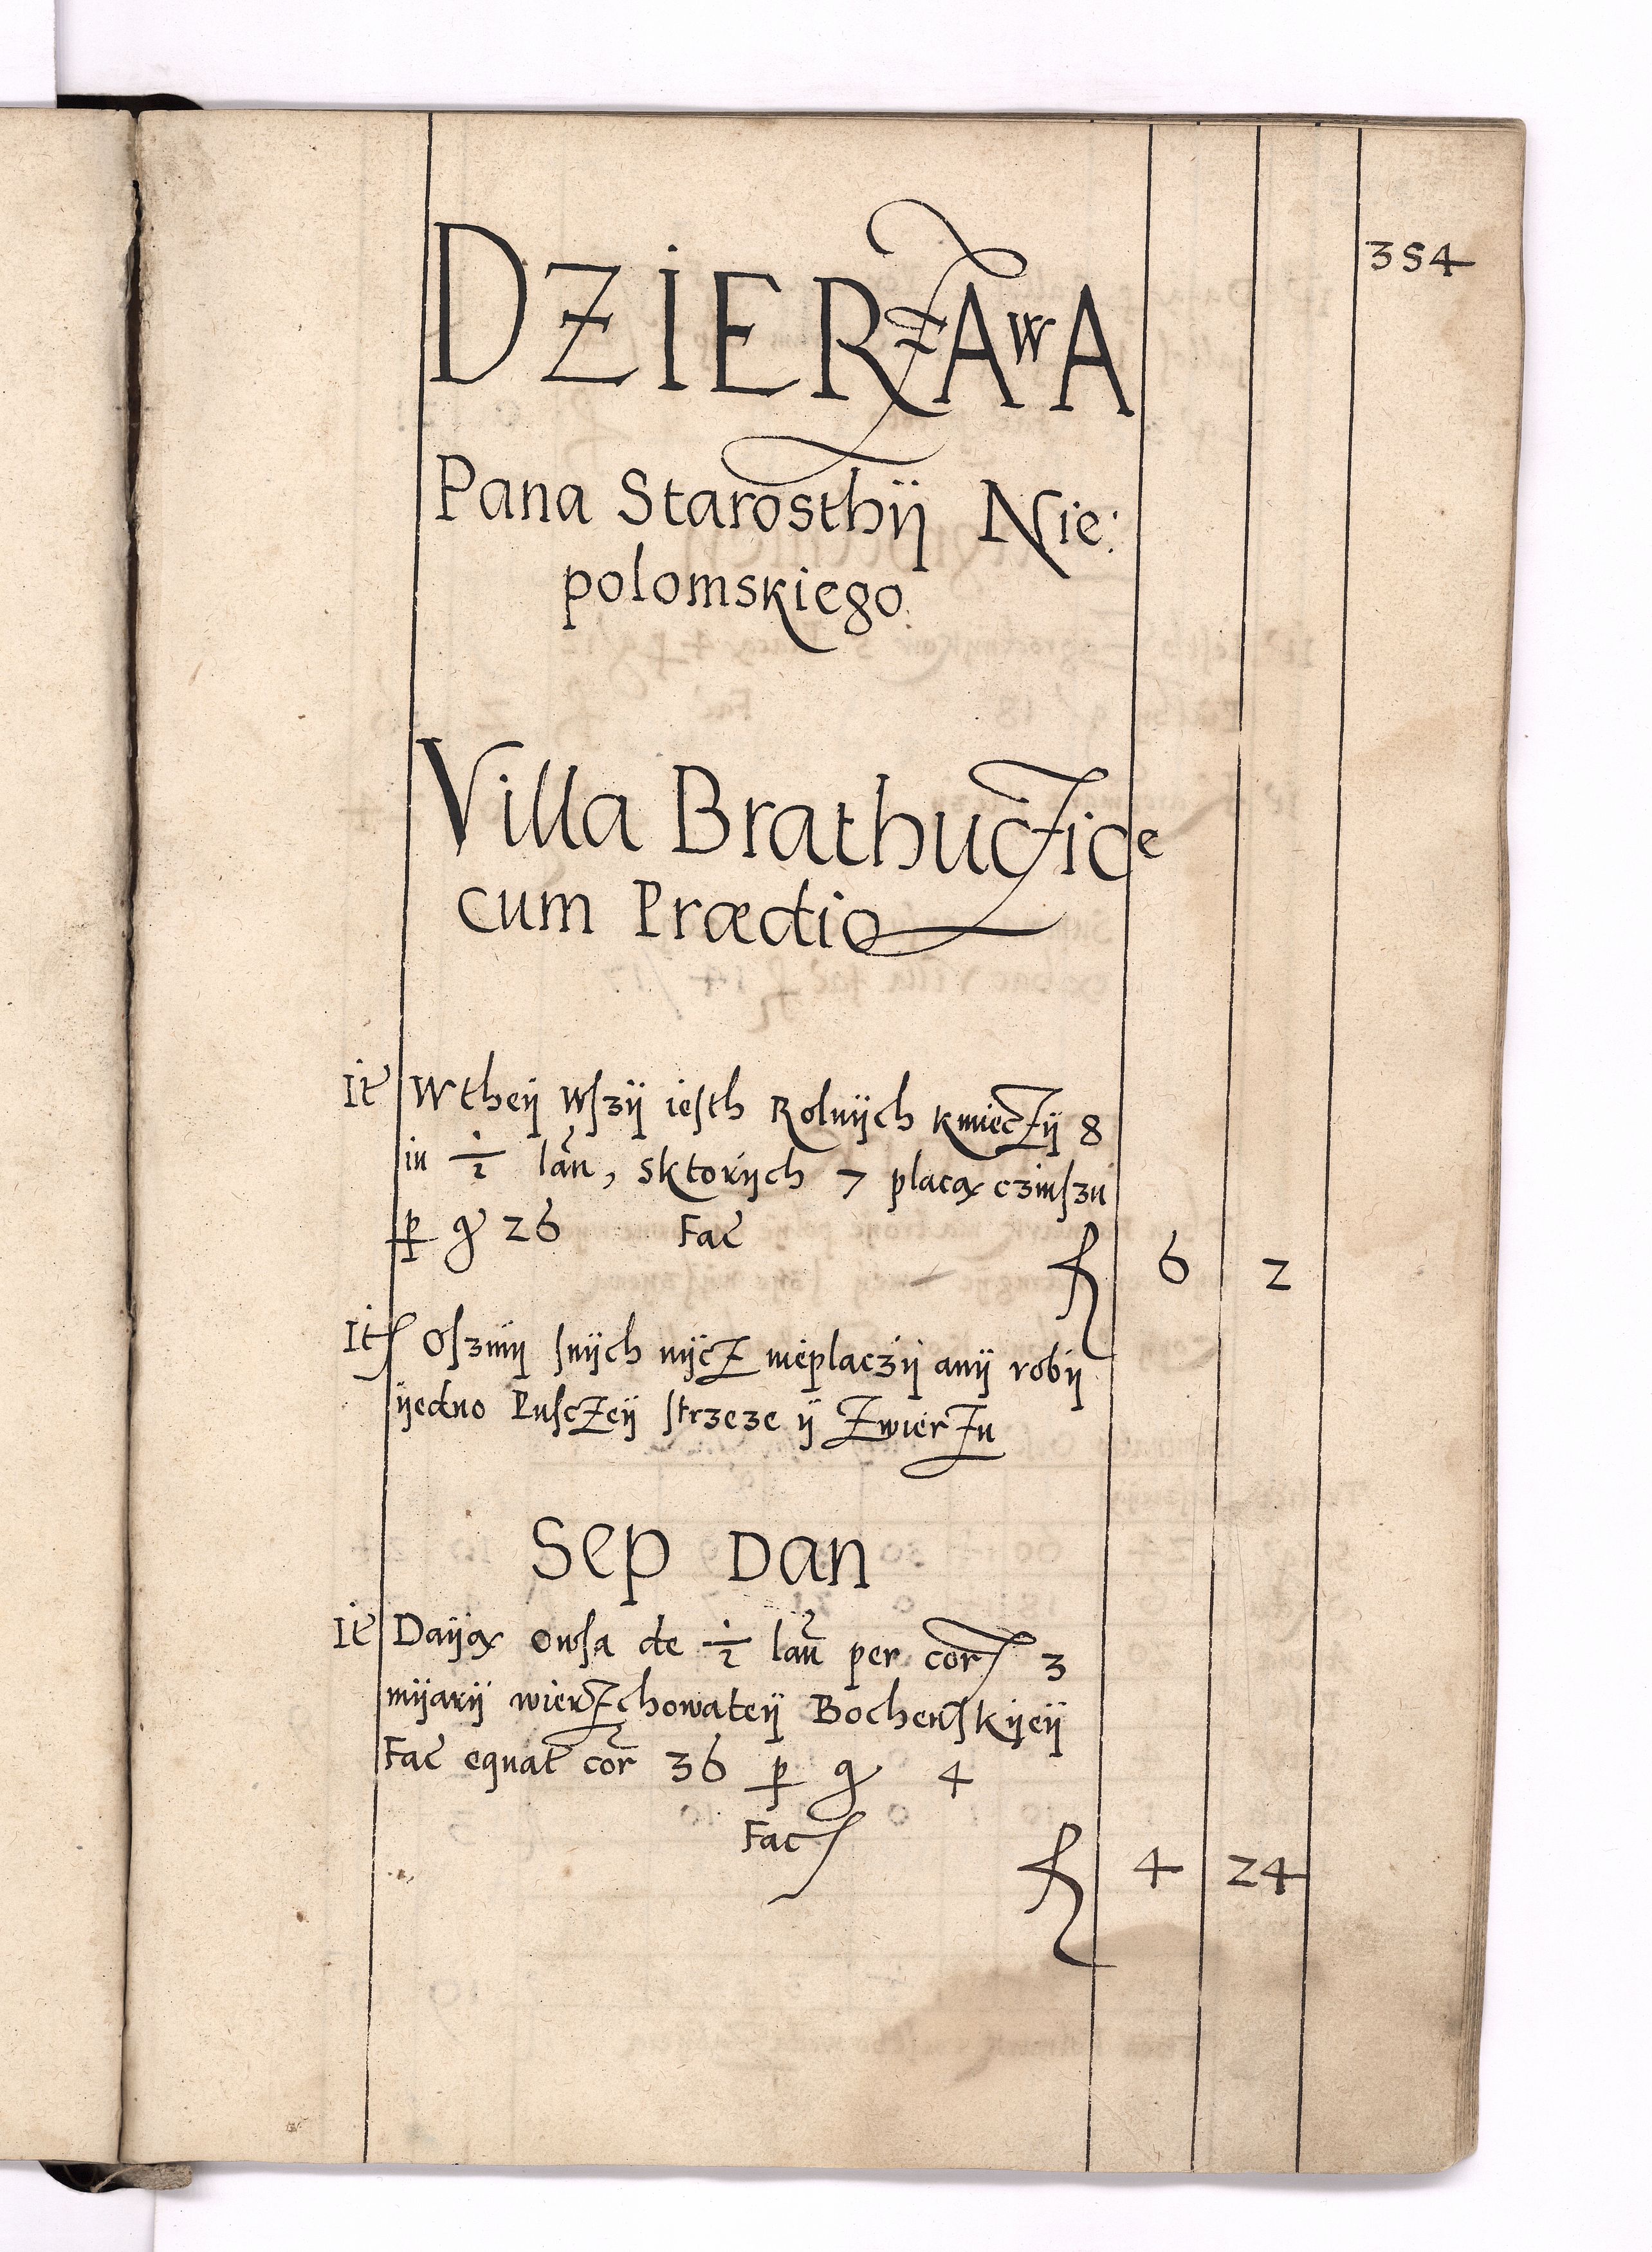 354
DZIERZAWA
Pana Starosthÿ Nie:
polomskiego.
Villa Brathuczice
cum Prædio
It Wtheÿ Wſzÿ ieſth Rolnÿch kmieczÿ 8
in ½ lan, sktorÿch 7 placą czinſzu
p gͬ 26 Fac fl 6 2
It Oſzmÿ ſnÿch nÿcz nieplaczÿ anÿ robÿ
ÿedno Puſczeÿ ſtrzeze ÿ Zwierzu
Sep Dan
It Daÿą owſa de ½ lan per cor 3
mÿarÿ wierzchowateÿ Bochenſkÿeÿ
Fac equat cor 36 p gͬ 4
Fac fl 4 24